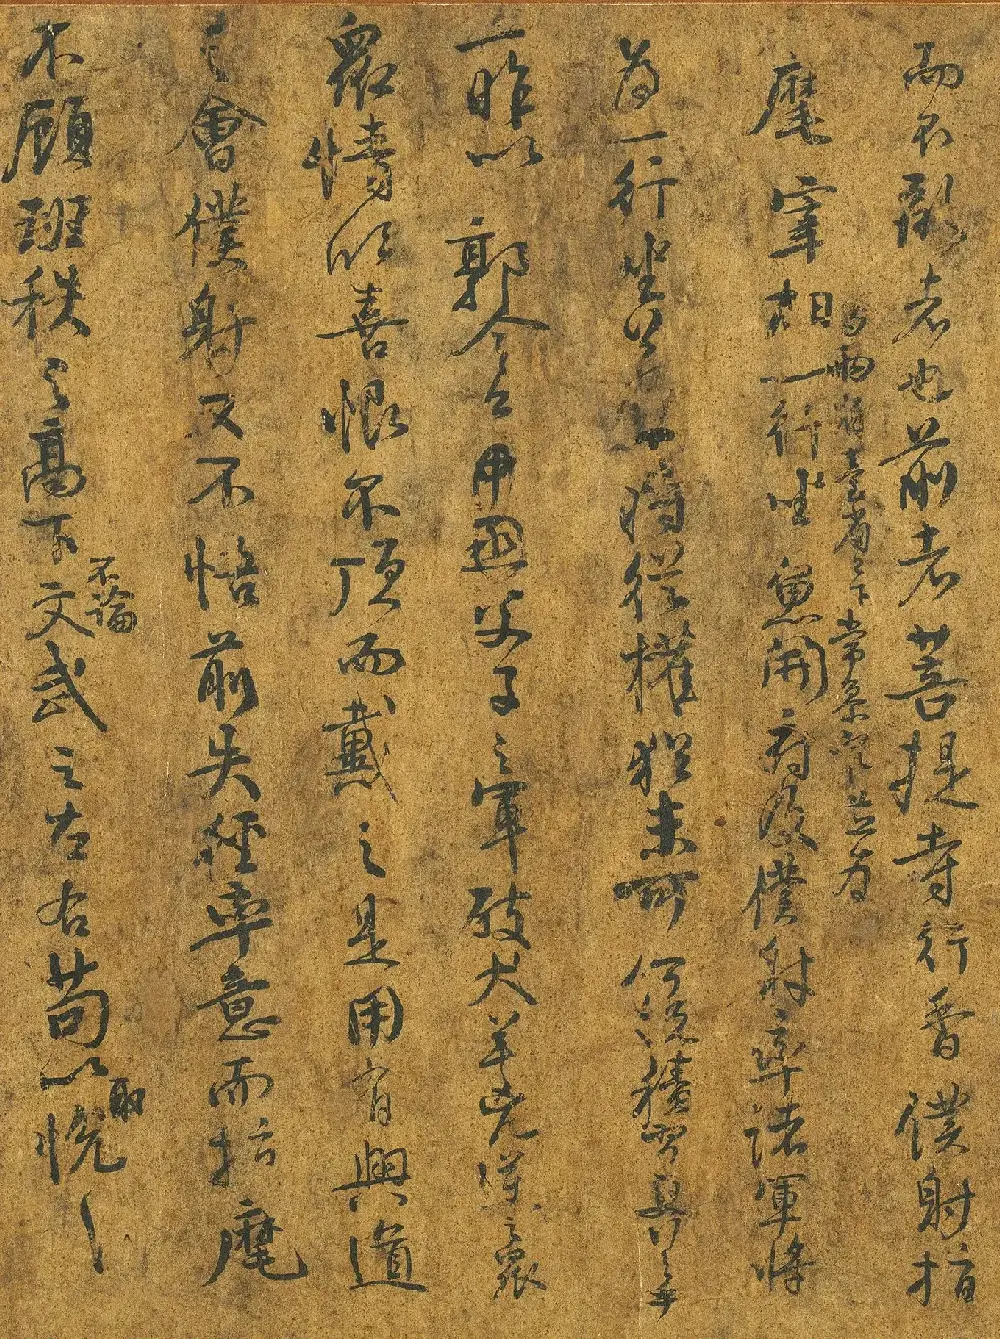 而不亂者也前者菩提寺行香僕射指
與兩省臺省已下常參官並為
麾宰相一行坐魚開府及僕射率諸軍將
為一行坐若一時從權猶未可何況積習更行之乎
一昨以郭令公父子之軍破犬羊兇逆之眾
眾情欣喜恨不頂而戴之是用有興道
之會僕射又不悟前失徑率意而指麾
不論
取
不顧班秩之高下文武之左右苟以悅